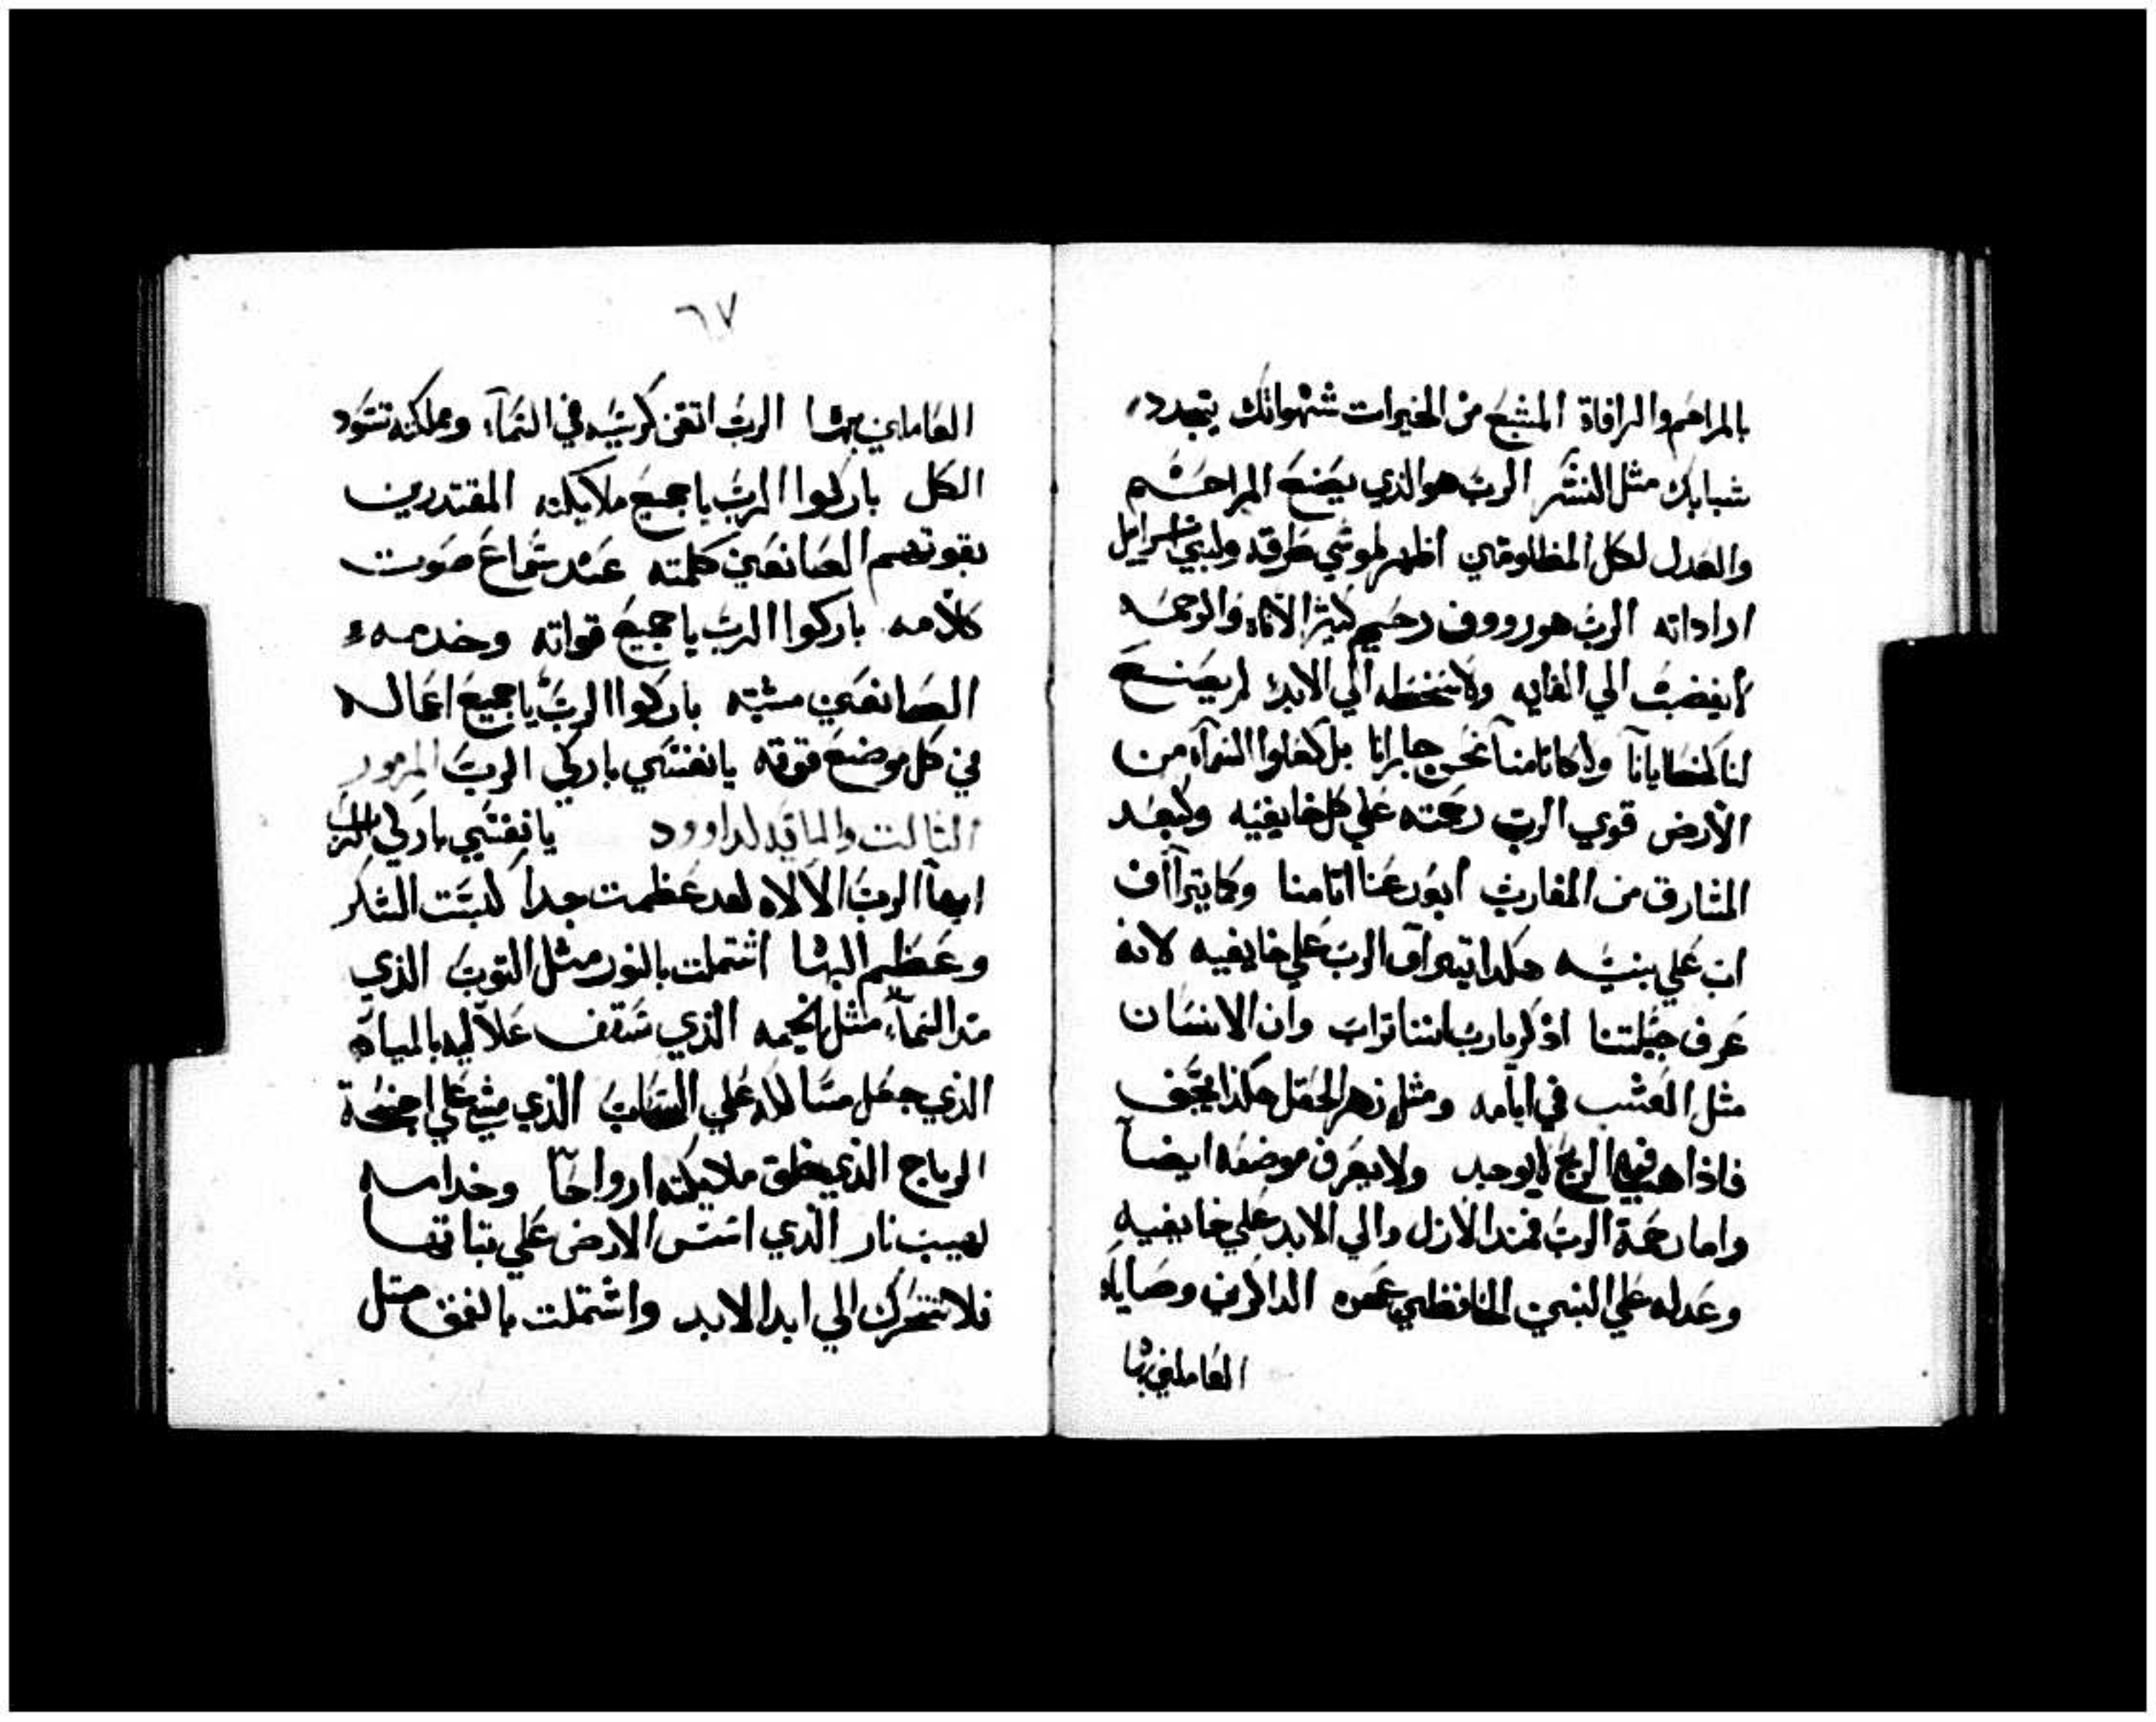 بالمراحم والرافاة المشبع من الخيرات شهواتك يتجدد
شبابك مثل النسر الرب هو الذي يصنع المراحم
والعدل لكل المظلومين اظهر لموسي طرقه ولبني اسراييل
اراداته الرب هو رووف رحيم كثير الاناه والرحمه
لا يغضب الي الغايه ولا سخطه الي الابد لم يصنع
لنا كخطايانا ولا كاثامنا نحن جابرانا بل كعلوا السمآء من
الارض قوي الرب رحمته علي كل خايفيه وكبعد
المشارق من المغارب ابعد عنا اثامنا وكما يتراآف
اب علي بنيه هكدا تيرااف الرب علي خايفيه لانه
عرف جبلتنا اذكر يارب اننا تراب وان الانسان
مثل العشب في ايامه ومثل زهر الحقل هكذا يجف
فاذا هب فيه الريح لا يوجد ولا يعرف موضعه ايضاً
واما رحمة الرب فمند الازل والي الابد علي خايفيه
وعدله علي البنين الحافظين عهده الداكرين وصاياه
العاملين بها
٦٧
العاملين بها الرب اتقن كرسيه في السمآء ومملكته تسود
الكل باركوا الرب ياجميع ملايكته المقتدرين
بقوتهم الصانعين كلمته عند سماع صوت
كلامه باركوا الرب ياجميع قواته وخدمه
الصانعين مشيته باركوا الرب ياجميع اعماله
في كل موضع قوته يانفسي باركي الرب المزمور
الثالت والمايه لداوود يانفسي باركي الرب
ايها الرب الالاه لقد عظمت جداً لبست الشكر
وعظيم البها اشتملت بالنور مثل التوب الذي
مد السمآء مثل الخيمه الذي سقف علاليه بالمياه
الذي جعل مسالكه علي السحاب الذي مشي علي اجنحة
الرياح الذي خلق ملايكته ارواحاً وخدامه
لهيب نار الذي اسس الارض علي تباتها
فلا تتحرك الي ابد الابد واشتملت بالغمق متل